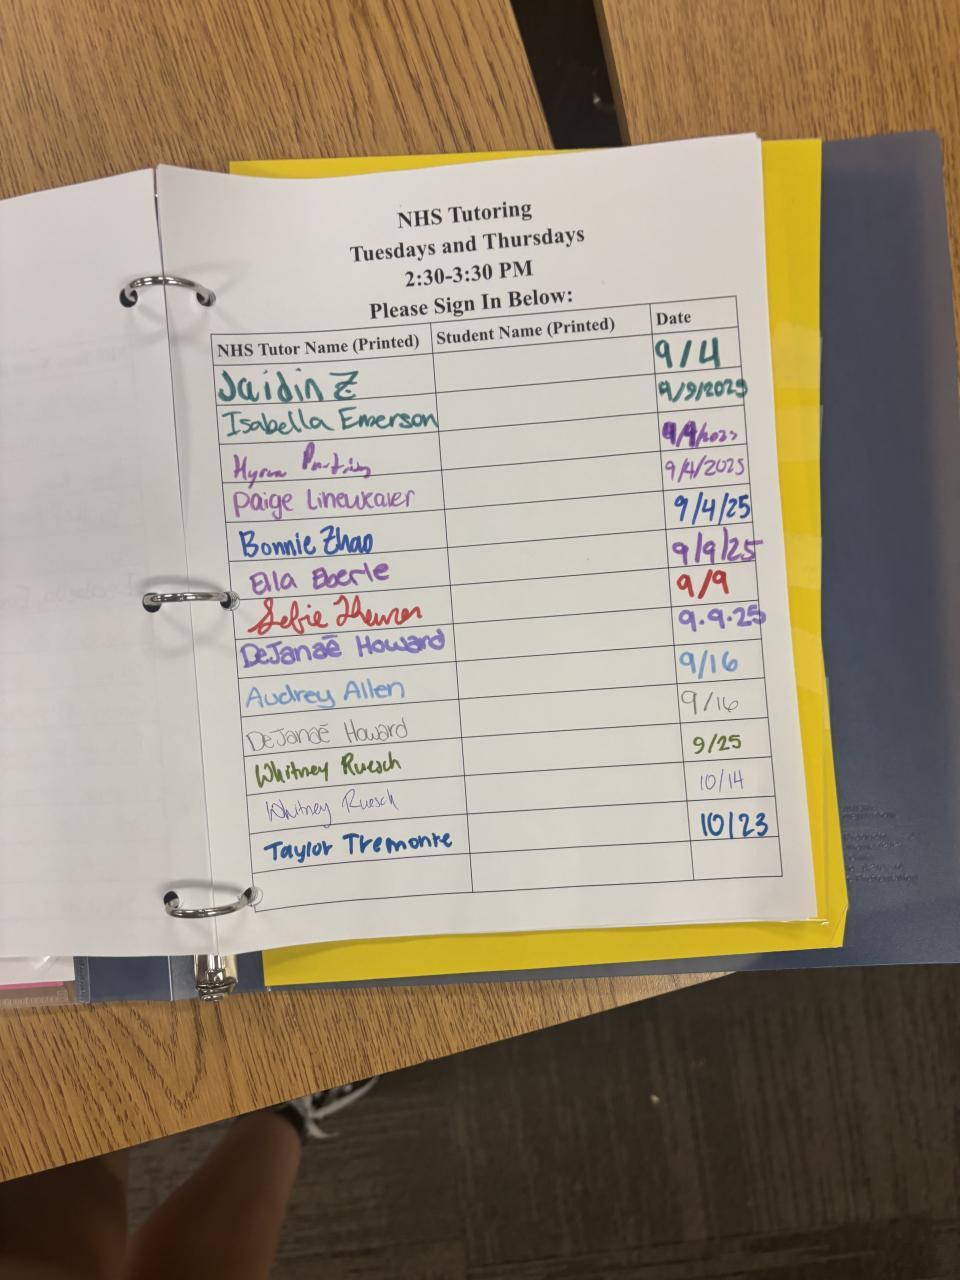 NHS Tutoring
Tuesdays and Thursdays
2:30-3:30 PM
Please Sign In Below:
NHS Tutor Name (Printed) Student Name (Printed) Date
Jaidin Z 9/4
Isabella Emerson 9/9/2025
9/9/2025
Paige Lineukaier 9/4/2025
Bonnie Zhao 9/4/25
Ella Eberle 9/9/25
9/9
DeJanaē Howard 9.9.25
Audrey Allen 9/16
DeJanaē Howard 9/16
Whitney Ruesch 9/25
Whitney Ruesch 10/14
Taylor Tremonte 10/23